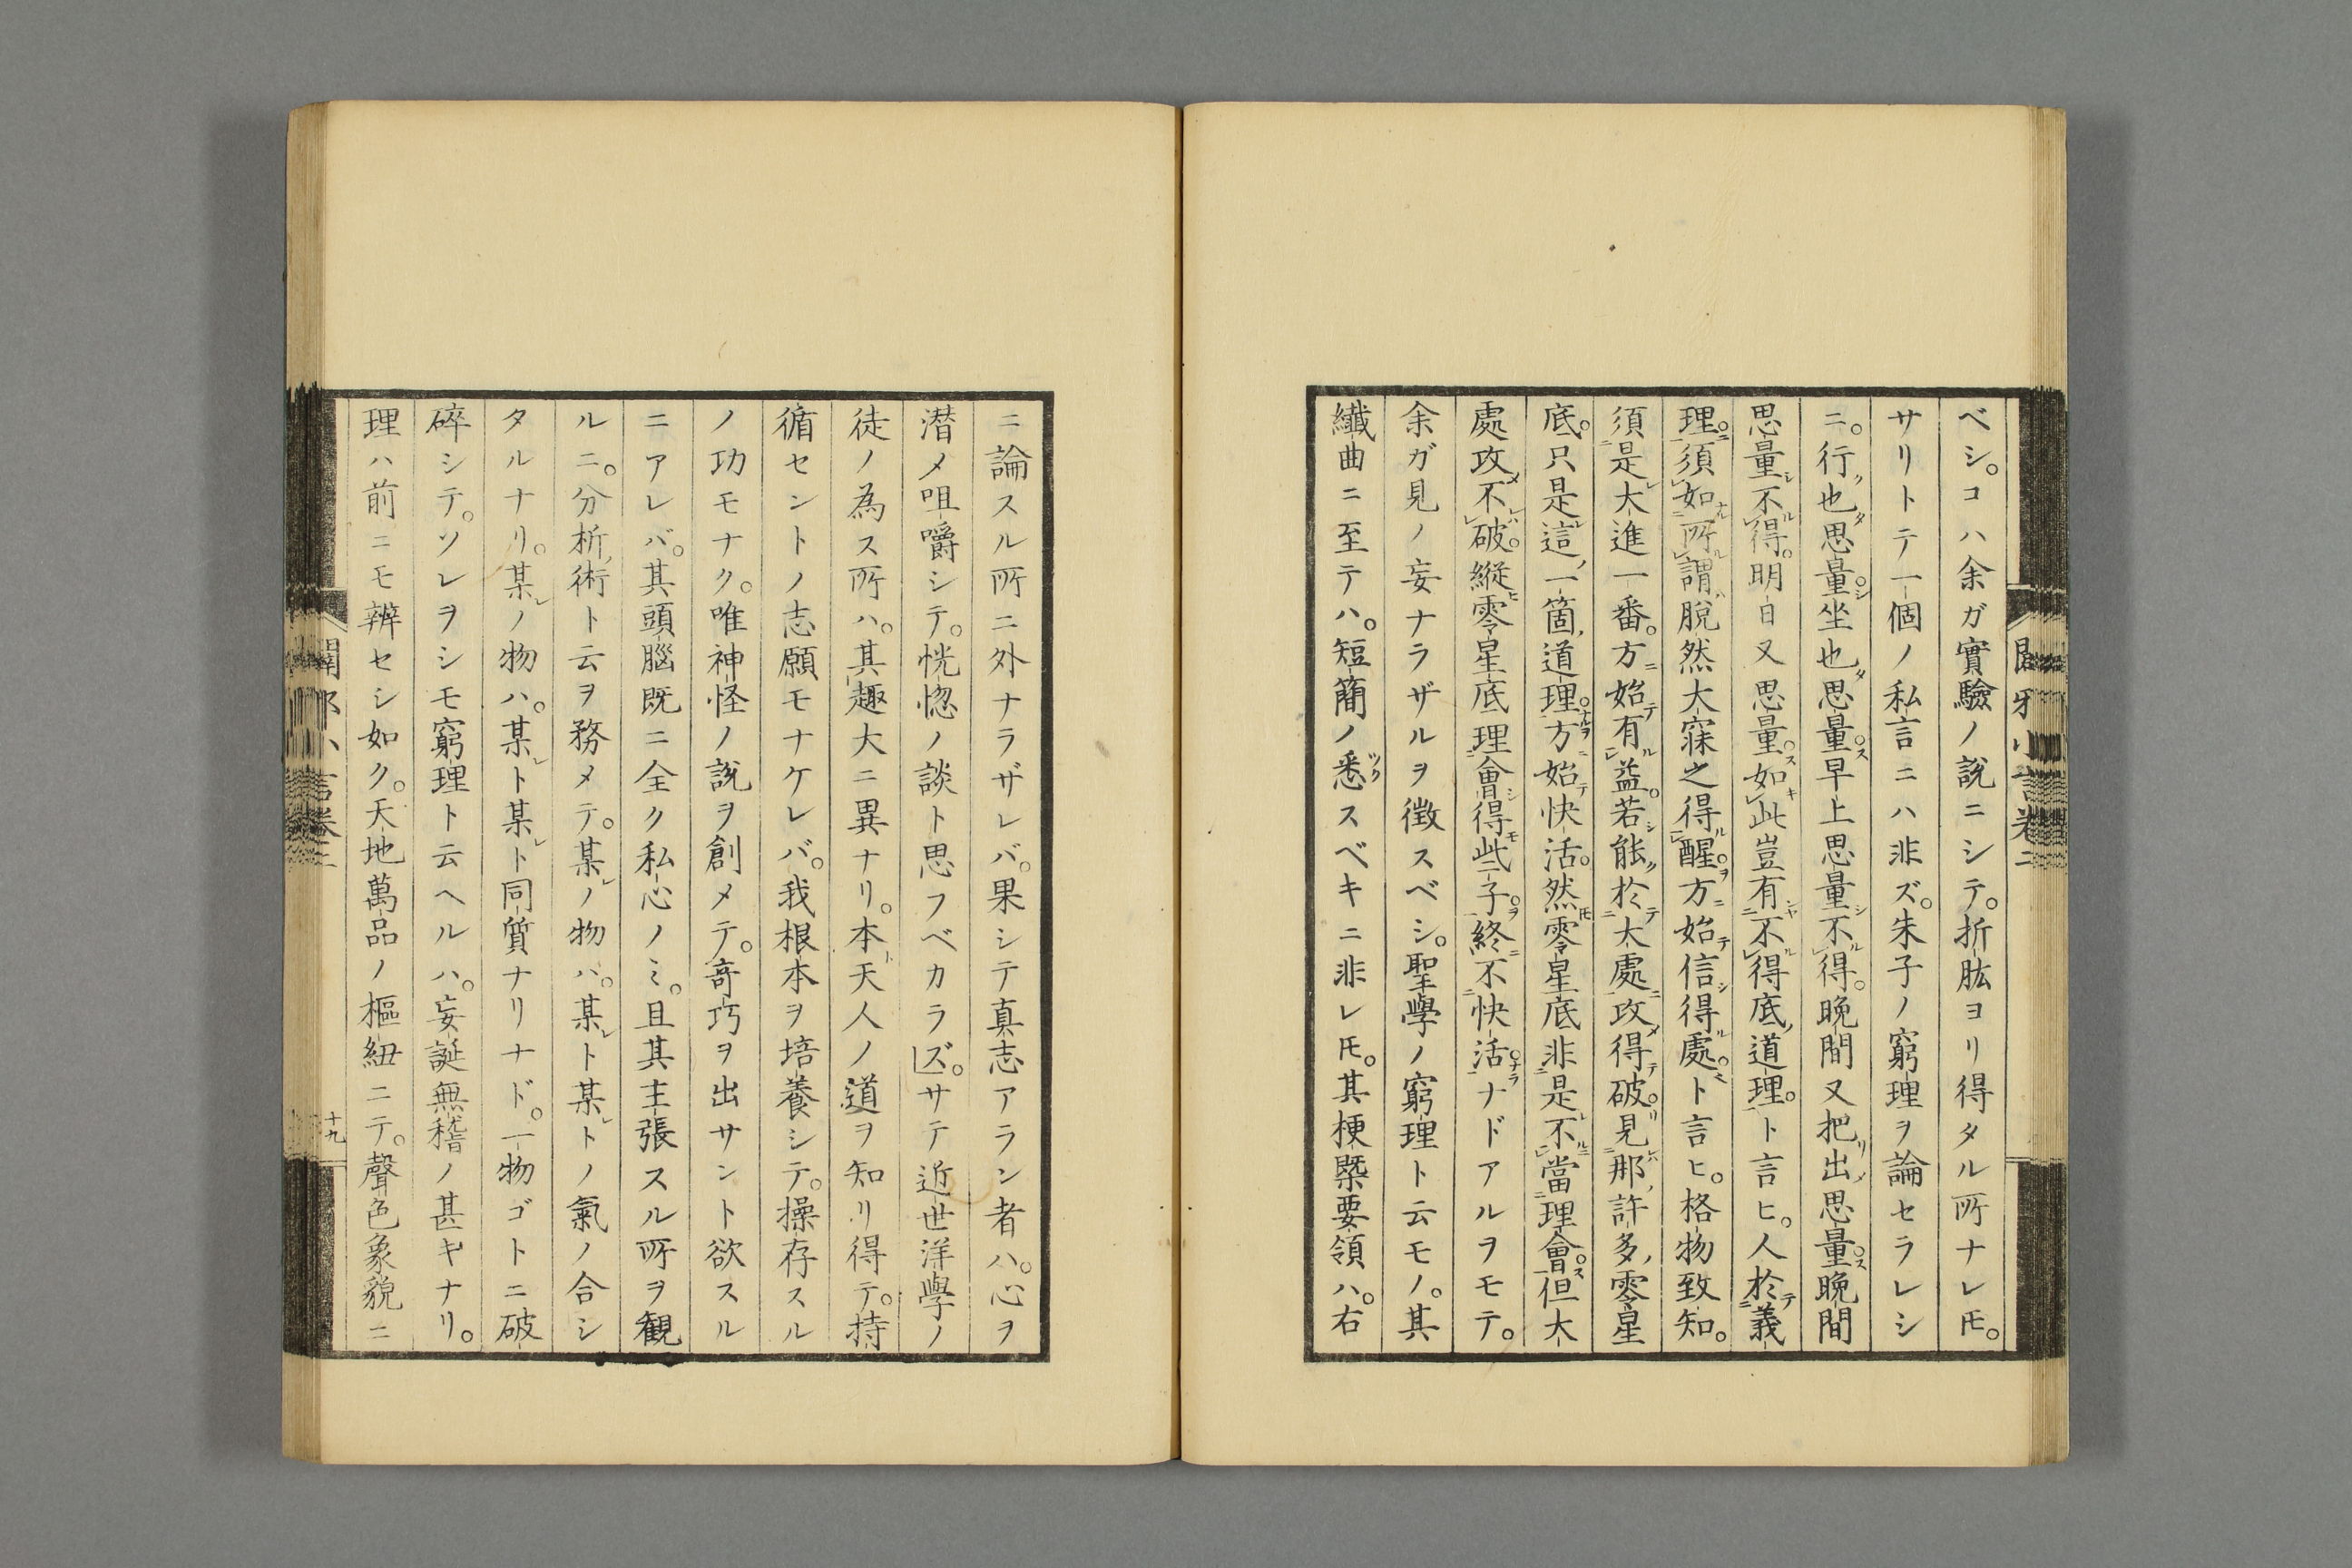 ベシ。コハ余ガ實驗ノ説ニシテ。折肱ヨリ得タル所ナレ𪜈。
サリトテ一個ノ私言ニハ非ズ。朱子ノ窮理ヲ論セラレシ
ニ。行也思量坐也思量早上思量不得。晩間又把出思量晩間
思量不得。明日又思量如此豈有不得底道理。ト言ヒ。人於義
理。須如所謂脱然大寐之得醒方始信得處。ト言ヒ。格物致知。
須是大進一番。方始有益。若能於大處攻得破。見那許多零星
底。只是這一箇道理。方始快活。然零星底非是不當理會。但大
處攻不破。縦零星底理會得些子。終不快活ナドアルヲモテ。
余ガ見ノ妄ナラザルヲ徴スベシ。聖學ノ窮理ト云モノ。其
纎曲ニ至テハ。短簡ノ悉スベキニ非レ𪜈。其梗槩要領ハ。右
ニ論スル所ニ外ナラザレバ。果シテ真志アラン者ハ。心ヲ
潜メ咀嚼シテ。恍惚ノ談ト思フベカラズ。サテ近世洋學ノ
徒ノ為ス所ハ。其趣大ニ異ナリ。本天人ノ道ヲ知リ得テ。持
循セントノ志願モナケレバ。我根本ヲ培養シテ。操存スル
ノ功モナク。唯神怪ノ説ヲ創メテ。奇巧ヲ出サント欲スル
ニアレバ。其頭腦既ニ全ク私心ノミ。且其主張スル所ヲ観
ルニ。分析術ト云ヲ務メテ。某ノ物ハ。某ト某トノ氣ノ合シ
タルナリ。某ノ物ハ。某ト某ト同質ナリナド。一物ゴトニ破
碎シテ。ソレヲシモ窮理ト云ヘルハ。妄誕無稽ノ甚キナリ。
理ハ前ニモ辨セシ如ク。天地萬品ノ樞紐ニテ。聲色象貌ニ
十九